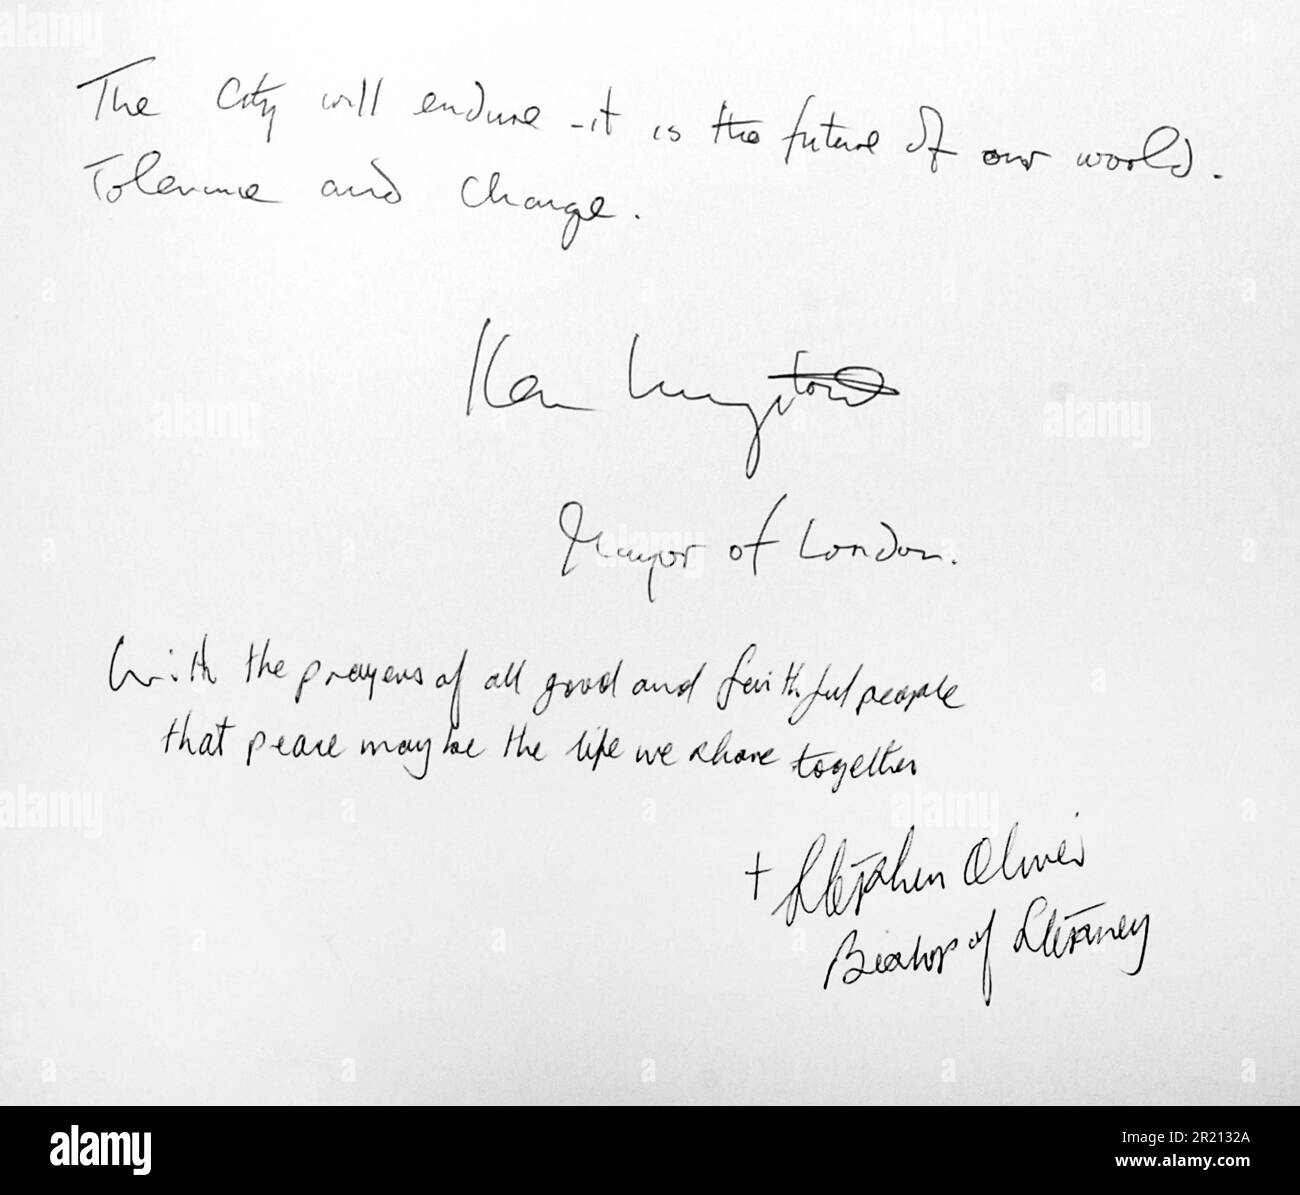 The City will endure - it is the future of our world.
Tolerance and change.
Ken Livingstone
Mayor of London.
With the prayers of all good and faithful people
that peace may be the life we share together
+ Stephen Oliver
Bishop of Stepney
alamy
Image ID: 2R2132A
www.alamy.com